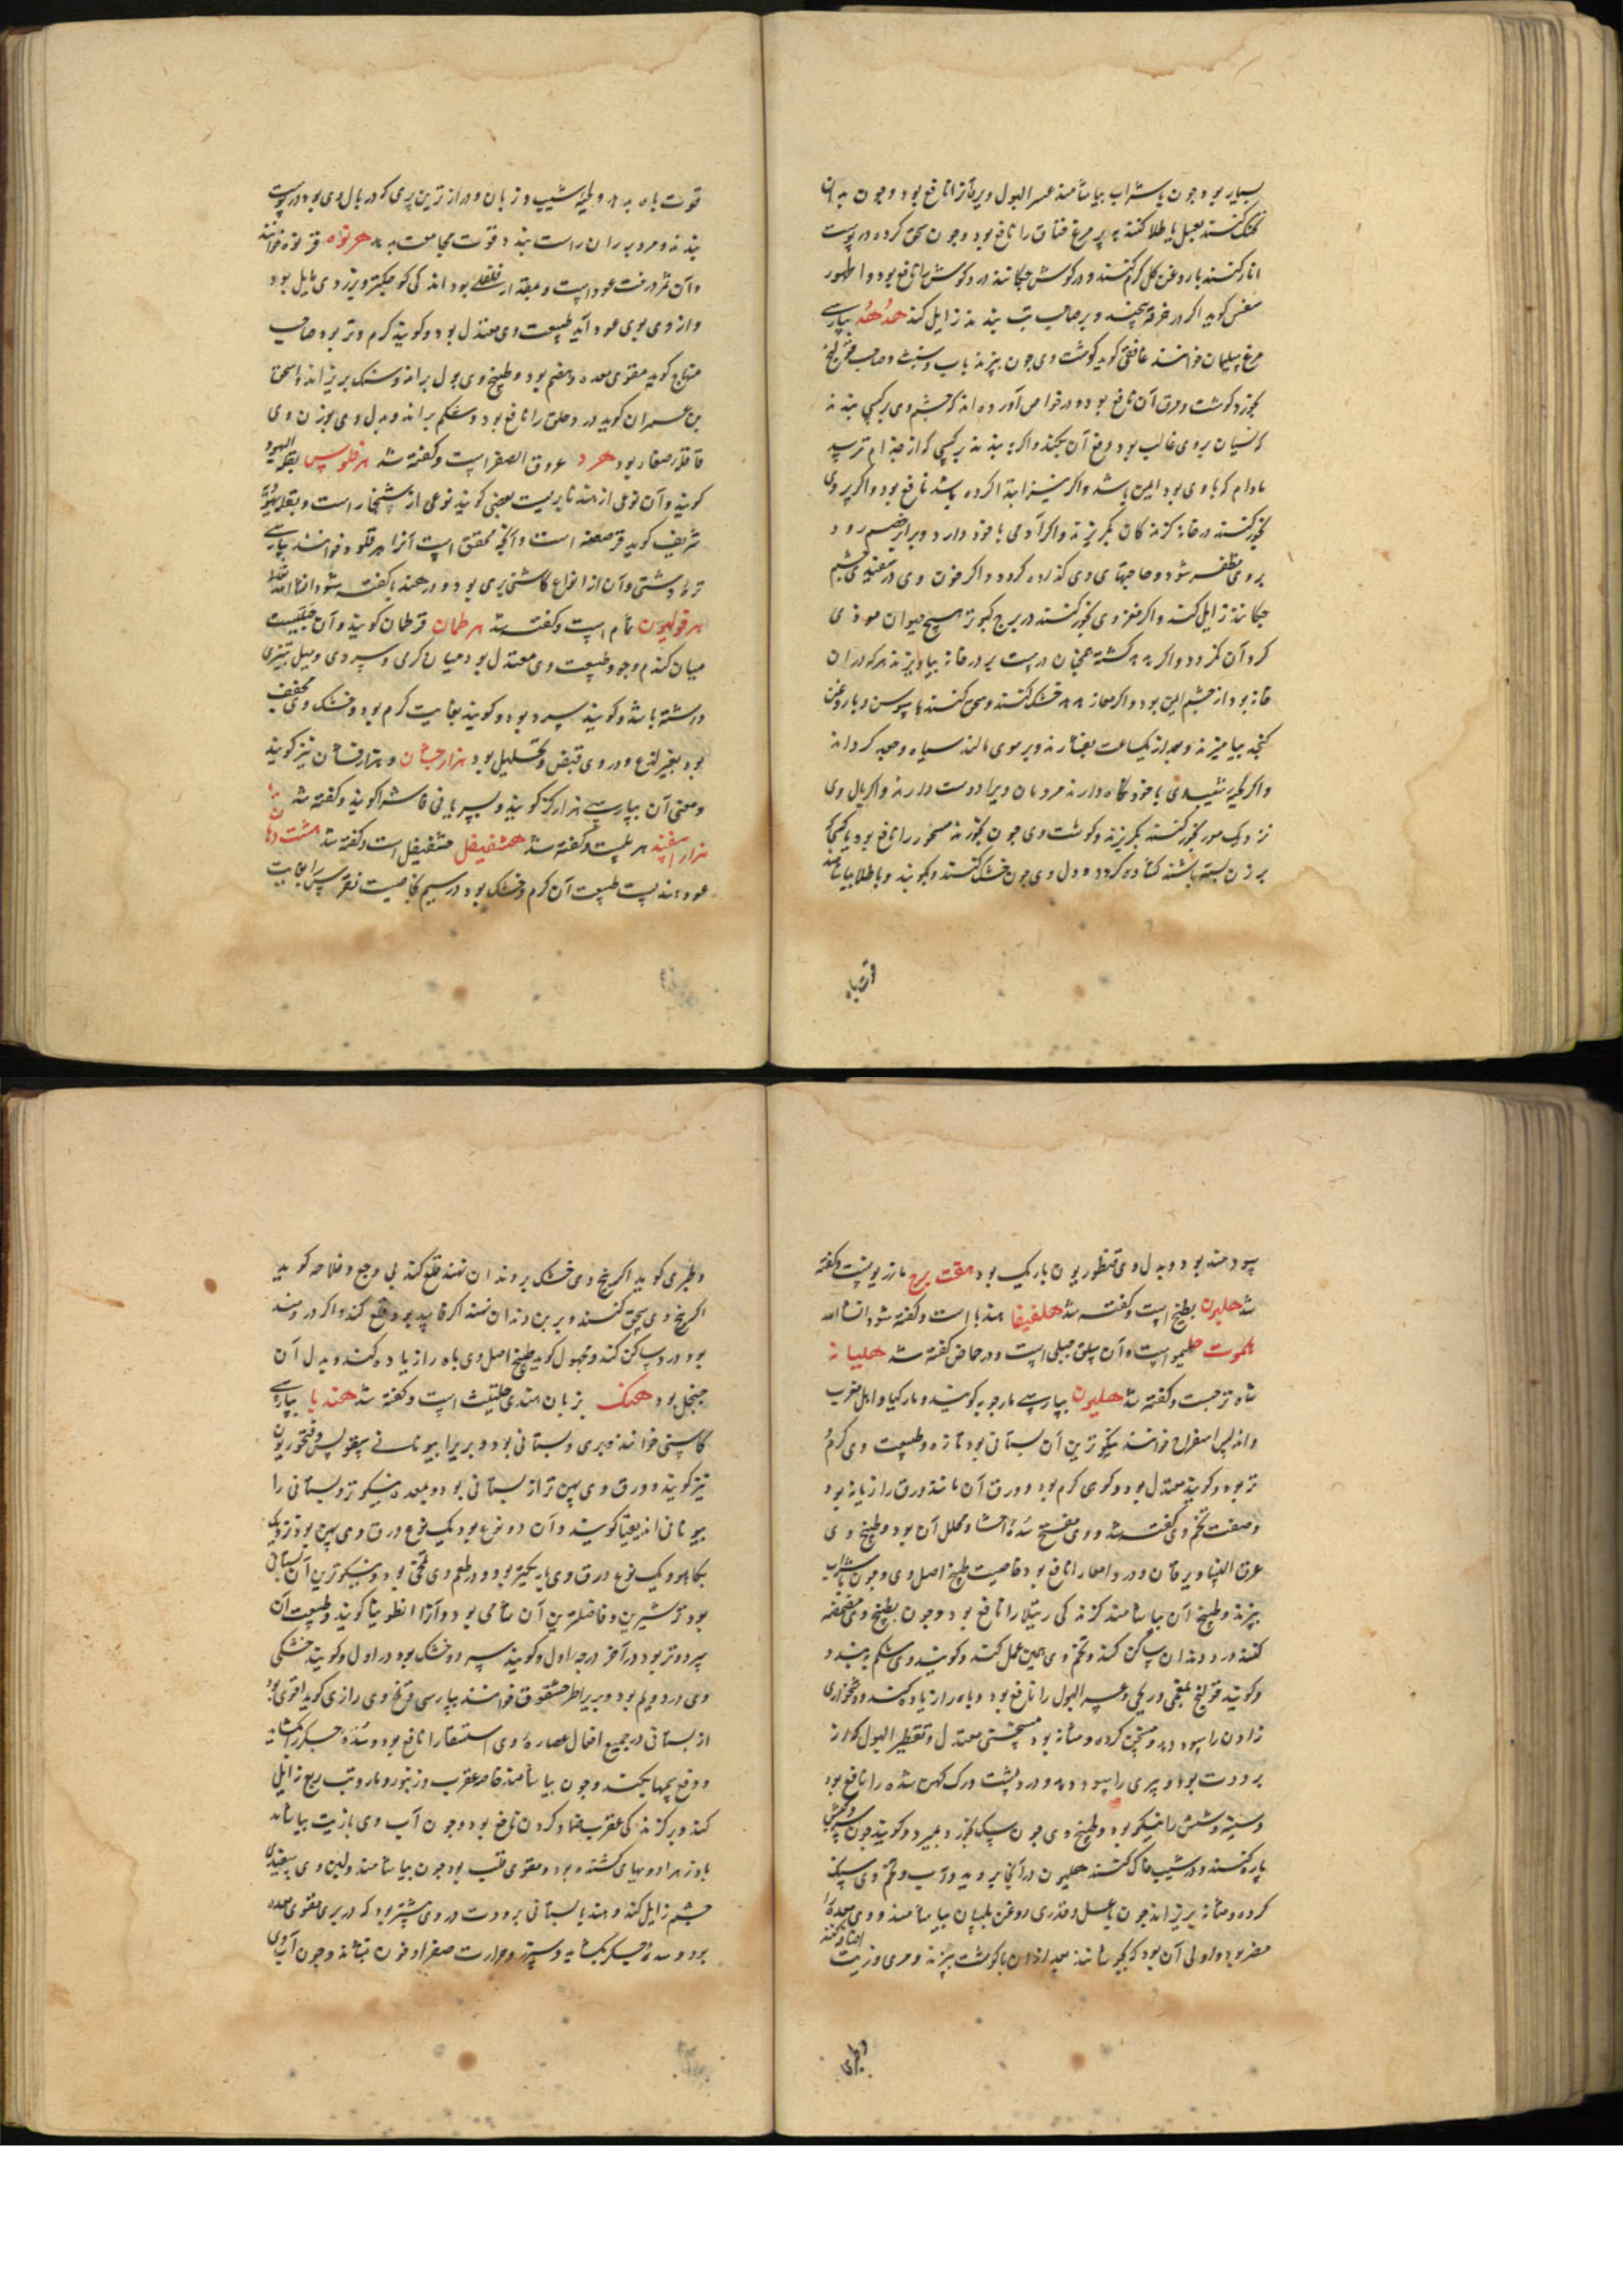 بسیار بود و چون با شراب بیاشامند عسر البول و یرقانرا نافع بود و چون به آن
کنند بعسل یا طلا کنند به پر مرغ خناق را نافع بود و چون سحق کرده در پوست
انار کنند با روغن گل گرم کنند و در گوش چکانند درد گوش را نافع بود و اطهور
سفس گوید اگر در خرقه پیچند و بر صاحب تب بندند زایل کند هدهد بپارسی
مرغ سلیمان خوانند غافقی گوید گوشت وی چون بپزند بآب و شبت و صاحب قولنج
بخورد گوشت و مرق آن نافع بود و در خواص آورده اند که چشم وی بر کسی بندند
که نسیان بر وی غالب بود دفع آن بکند و اگر بندند بر کسی که از جذام ترسد
مادام که با وی بود ایمن باشد و اگر نیز ابتدا کرده باشد نافع بود و اگر پر وی
بخور کنند در خانه گزندگان بگریزند و اگر آدمی با خود دارد و برابر خصم رود
بر وی مظفر شود و حاجتهای وی گذارده گردد و اگر خون وی در سفیدی چشم
چکانند زایل کند و اگر مغز وی بخور کنند در برج کبوتر هیچ حیوان موذی
گرد آن نگردد و اگر کشته همچنان درست بر در خانه بیاویزند هر که در آن
خانه بود از چشم ایمن بود و اگر خشک کنند و سحق کنند و با روغن
کنجد بیامیزند و بعد از یکساعت بفشارند و بر موی مالند سیاه و جعد گرداند
و اگر با خود نگاه دارند مردمان ویرا دوست دارند و اگر بال وی
نزدیک مور بخور کنند بگریزند و گوشت وی چون بخورند مسحور را نافع بود یا کسی که
بر زن بسته باشند گشاده گردد و دل وی چون خشک کنند و بکوبند و با طلا بیاشامند
قوت باه
قوت باه بدهد و زبان و درازترین پری که در بال وی بود در پوست
بندند و مرد بر ران راست بندد قوت مجامعت بدهد هرنوه قرنوه خوانند
و آن ثمر درخت عود است و بمقدار فلفلی بود اندکی کوچکتر و بزردی مایل بود
و از وی بوی عود آید طبیعت وی معتدل بود و گویند گرم و تر بود صاحب
منهاج گوید مقوی معده و هضم بود و طبیخ وی بول براند و سنگ بریزاند و اسحق
بن عمران گوید درد حلق را نافع بود و شکم براند و بدل وی بوزن وی
قاقله صغار بود هرد عروق الصفر است و گفته شد هرقلوس بقله الیهود
گویند و آن نوعی از هندبا بریست بعضی گویند نوعی از شنجار است و بقله یهودیه
شریف گوید قرصعنه است و آنچه محقق است آنرا هرقلوه خوانند بپارسی
تره دشتی و آن از انواع کاسنی بری بود و در هندبا گفته شود انشاء الله تعالی
هرقولیون نمام است و گفته شد هرطمان قرطمان گویند و آن حبیست
میان گندم و جو و طبیعت وی معتدل بود میان گرمی و سردی و میل بتیزی
داشته باشد و گویند سرد بود و گویند بغایت گرم بود و خشک وی مجفف
بود بغیر لذع و در وی قبض و تحلیل بود هزار جشان و هزارفشان نیز گویند
و معنی آن بپارسی هزار گز گویند و بسریانی فاشرا گویند و گفته شد
هزار اسفند حرمل است و گفته شد هشفیفل است و گفته شد هشت دهان
عود هندیست طبیعت آن گرم و خشک بود در سیم خاصیت نقرس را بغایت
سودمند بود و بدل وی قنطوریون باریک بود هفت برج مازریونست و گفته
شد هلیون بطیخ است و گفته شد هلفیفا هندبا است و گفته شود انشاء الله
هلموت حلیمو است و آن سلق جبلی است و در حماض گفته شد هلیانه
شاه ترجست و گفته شد هلیون بپارسی مارچوبه گویند و مارگیا و اهل مغرب
و اندلس اسفراج خوانند نیکوترین آن بستانی بود تازه و طبیعت وی گرم و
تر بود و گویند معتدل بود و گویند گرم بود و ورق آن مانند ورق رازیانه بود
و صفت تخم وی گفته شد و وی مفتح سده احشا و محلل آن بود و طبیخ وی
عرق النسا و یرقان و درد امعا را نافع بود خاصیت طبیخ اصل وی و چون با شراب
بپزند و طبیخ آن بیاشامند گزندگی رتیلا را نافع بود و چون بطبیخ وی مضمضه
کنند درد دندان ساکن کند و تخم وی همین عمل کند و گویند وی شکم ببندد
و گویند قولنج بلغمی و ریحی و عسر البول را نافع بود و باه را زیاده کند و دشخواری
زادن را سود دهد و مسخن گرده و مثانه بود مسخنی معتدل و تقطیر البول که از
برودت بود و پیری را سود دهد و درد پشت و ورک کهن شده را نافع بود
و سینه و شش را نیکو بود و طبیخ وی چون سگ بخورد بمیرد و گویند چون سرون گوسفند
پاره کنند و در شیب خاک کنند هلیون در آنجا بروید و آب و تخم وی سنگ
گرده و مثانه بریزاند چون با عسل و قدری روغن بلسان بیاشامند و وی معده را
مضر بود و اولی آن بود که بجوشانند بعد از آن با گوشت بپزند و مری و زیت
اضافه کنند
و طبری
و طبری گوید اگر بیخ وی خشک بر دندان نهند قلع کند بی وجع و فلاحه گوید
اگر بیخ وی سحق کنند و بر بن دندان نهند اگر فاسد بود قلع کند و اگر دردمند
بود درد ساکن کند و مجهول گوید طبیخ اصل وی باه را زیاده کند و بدل آن
بود هنک بزبان هندی حلتیث است و گفته شد هندبا بپارسی
کاسنی خوانند و بری و بستانی بود و بریرا بیونانی سقولس و قیخوریون
نیز گویند و ورق وی پهن تر از بستانی بود و بمعده نیکوتر و بستانی را
بیونانی اندیقیا گویند و آن دو نوع بود یک نوع ورق وی پهن بود نزدیک
بکاهو و یک نوع ورق وی باریکتر بود و در طعم وی تلخی بود و نیکوترین آن بستانی
بود تر شیرین و فاضلترین آن شامی بود و آنرا انطوبیا گویند و طبیعت آن
سرد و تر بود در آخر درجه اول و گویند سرد و خشک بود در اول و گویند خشکی
وی در دویم بود و بری را طرخشقوق خوانند بپارسی تلخ وی رازی گوید اقوی بود
از بستانی در جمیع افعال عصاره وی استسقا را نافع بود و سده جگر بگشاید
و دفع سمها بکند و چون بیاشامند خاصه عقرب و زنبور و مار و تب ربع زایل
کند و بر گزندگی عقرب ضماد کردن نافع بود و چون آب وی با زیت بیاشامند
بادزهر ادویهای کشنده بود و مقوی قلب بود چون بیاشامند و لبن وی سفیدی
چشم زایل کند و هندبا بستانی برودت در وی بیشتر بود که در بری مقوی معده
بود و سده جگر بگشاید و سپرز و حرارت صفرا و خون بنشاند و چون آب وی